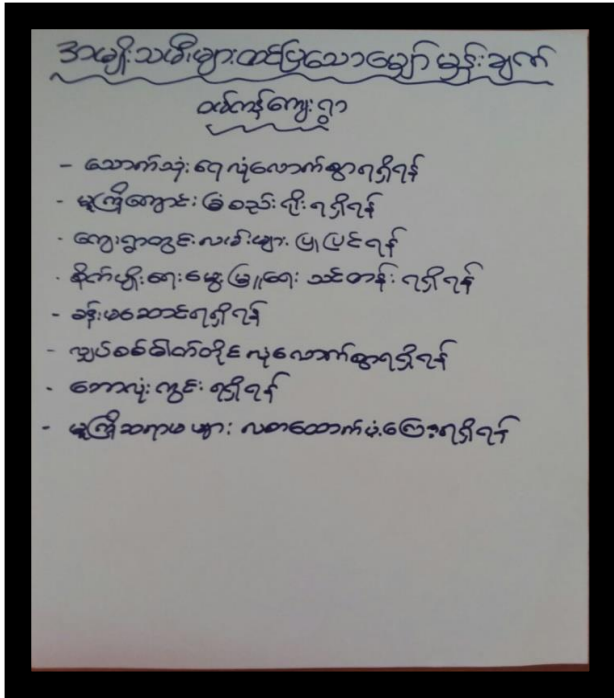 အမျိုးသမီးများတင်ပြသောမျှော်မှန်းချက်
တစ်ကန်ကျေးရွာ
- သောက်သုံးရေလုံလောက်စွာရရှိရန်
- မူကြိုကျောင်း ခြံစည်းရိုးရရှိရန်
- ကျေးရွာတွင်းလမ်းများပြုပြင်ရန်
- စိုက်ပျိုးရေးမွေးမြူရေး သင်တန်း ရရှိရန်
- ခန်းမဆောင်ရရှိရန်
- လျှပ်စစ်ဓါတ်တိုင် လုံလောက်စွာရရှိရန်
- ဘောလုံးကွင်း ရရှိရန်
- မူကြိုဆရာမများ လစာထောက်ပံ့ကြေးရရှိရန်